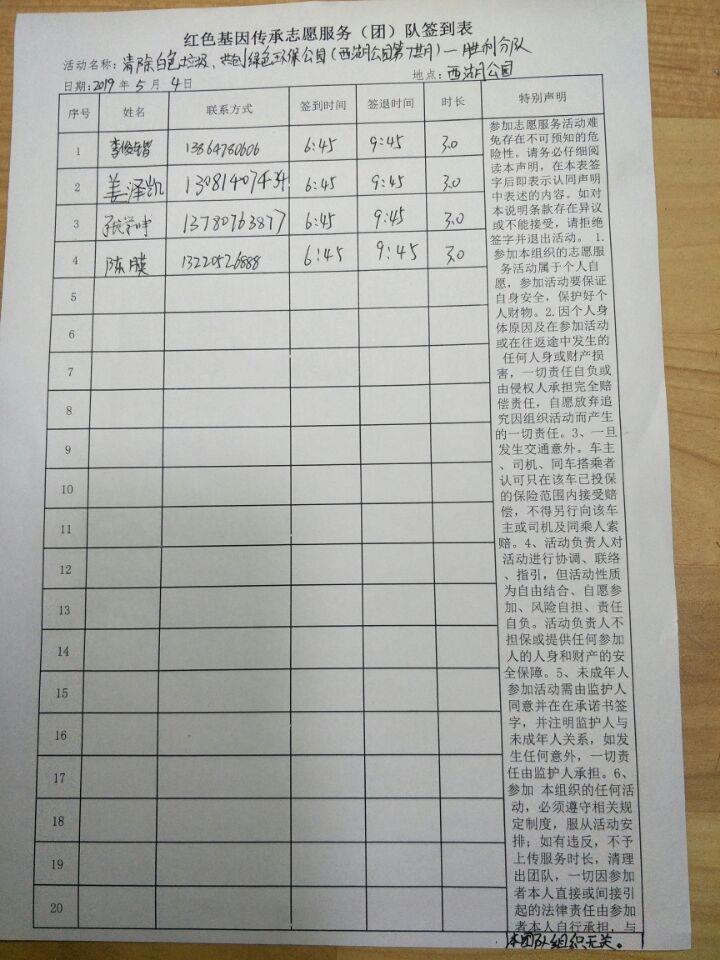 红色基因传承志愿服务（团）队签到表
活动名称：清除白色垃圾、共创绿色环保公园（西湖公园第 期）—胜利分队
日期：2019年5月4日 地点：西湖公园
序号 姓名 联系方式 签到时间 签退时间 时长 特别声明
1 李俊 13864780606 6:45 9:45 3.0
2 姜泽凯 13081407434 6:45 9:45 3.0
3 13780763877 6:45 9:45 3.0
4 陈 13220526888 6:45 9:45 3.0
5
6
7
8
9
10
11
12
13
14
15
16
17
18
19
20
参加志愿服务活动难
免存在不可预知的危
险性。请务必仔细阅
读本声明，在本表签
字后即表示认同声明
中表述的内容。如对
本说明条款存在异议
或不能接受，请拒绝
签字并退出活动。 1.
参加本组织的志愿服
务活动属于个人自
愿，参加活动要保证
自身安全，保护好个
人财物。2.因个人身
体原因及在参加活动
或在往返途中发生的
任何人身或财产损
害，一切责任自负或
由侵权人承担完全赔
偿责任，自愿放弃追
究因组织活动而产生
的一切责任。3、一旦
发生交通意外。车主
、司机、同车搭乘者
认可只在该车已投保
的保险范围内接受赔
偿，不得另行向该车
主或司机及同乘人索
赔。4、活动负责人对
活动进行协调、联络
、指引，但活动性质
为自由结合、自愿参
加、风险自担、责任
自负。活动负责人不
担保或提供任何参加
人的人身和财产的安
全保障。5、未成年人
参加活动需由监护人
同意并在在承诺书签
字，并注明监护人与
未成年人关系，如发
生任何意外，一切责
任由监护人承担。6、
参加 本组织的任何活
动，必须遵守相关规
定制度，服从活动安
排；如有违反，不予
上传服务时长，清理
出团队，一切因参加
者本人直接或间接引
起的法律责任由参加
者本人自行承担，与
本团队组织无关。